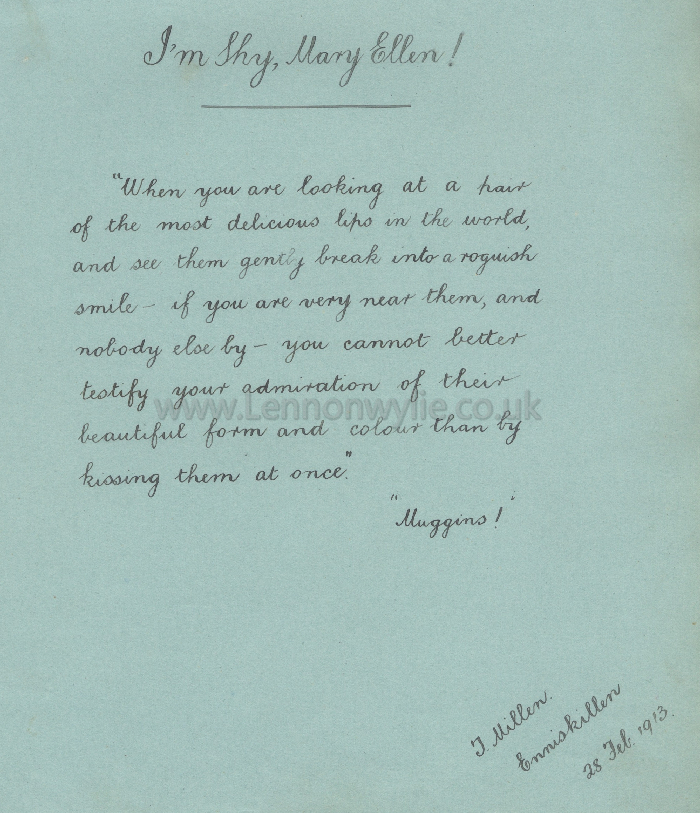 I'm Shy, Mary Ellen!
"When you are looking at a pair
of the most delicious lips in the world,
and see them gently break into a roguish
smile – if you are very near them, and
nobody else by – you cannot better
testify your admiration of their
beautiful form and colour than by
kissing them at once."
"Muggins!"
J. Millen.
Enniskillen
28 Feb. 1913.
www.Lennonwylie.co.uk